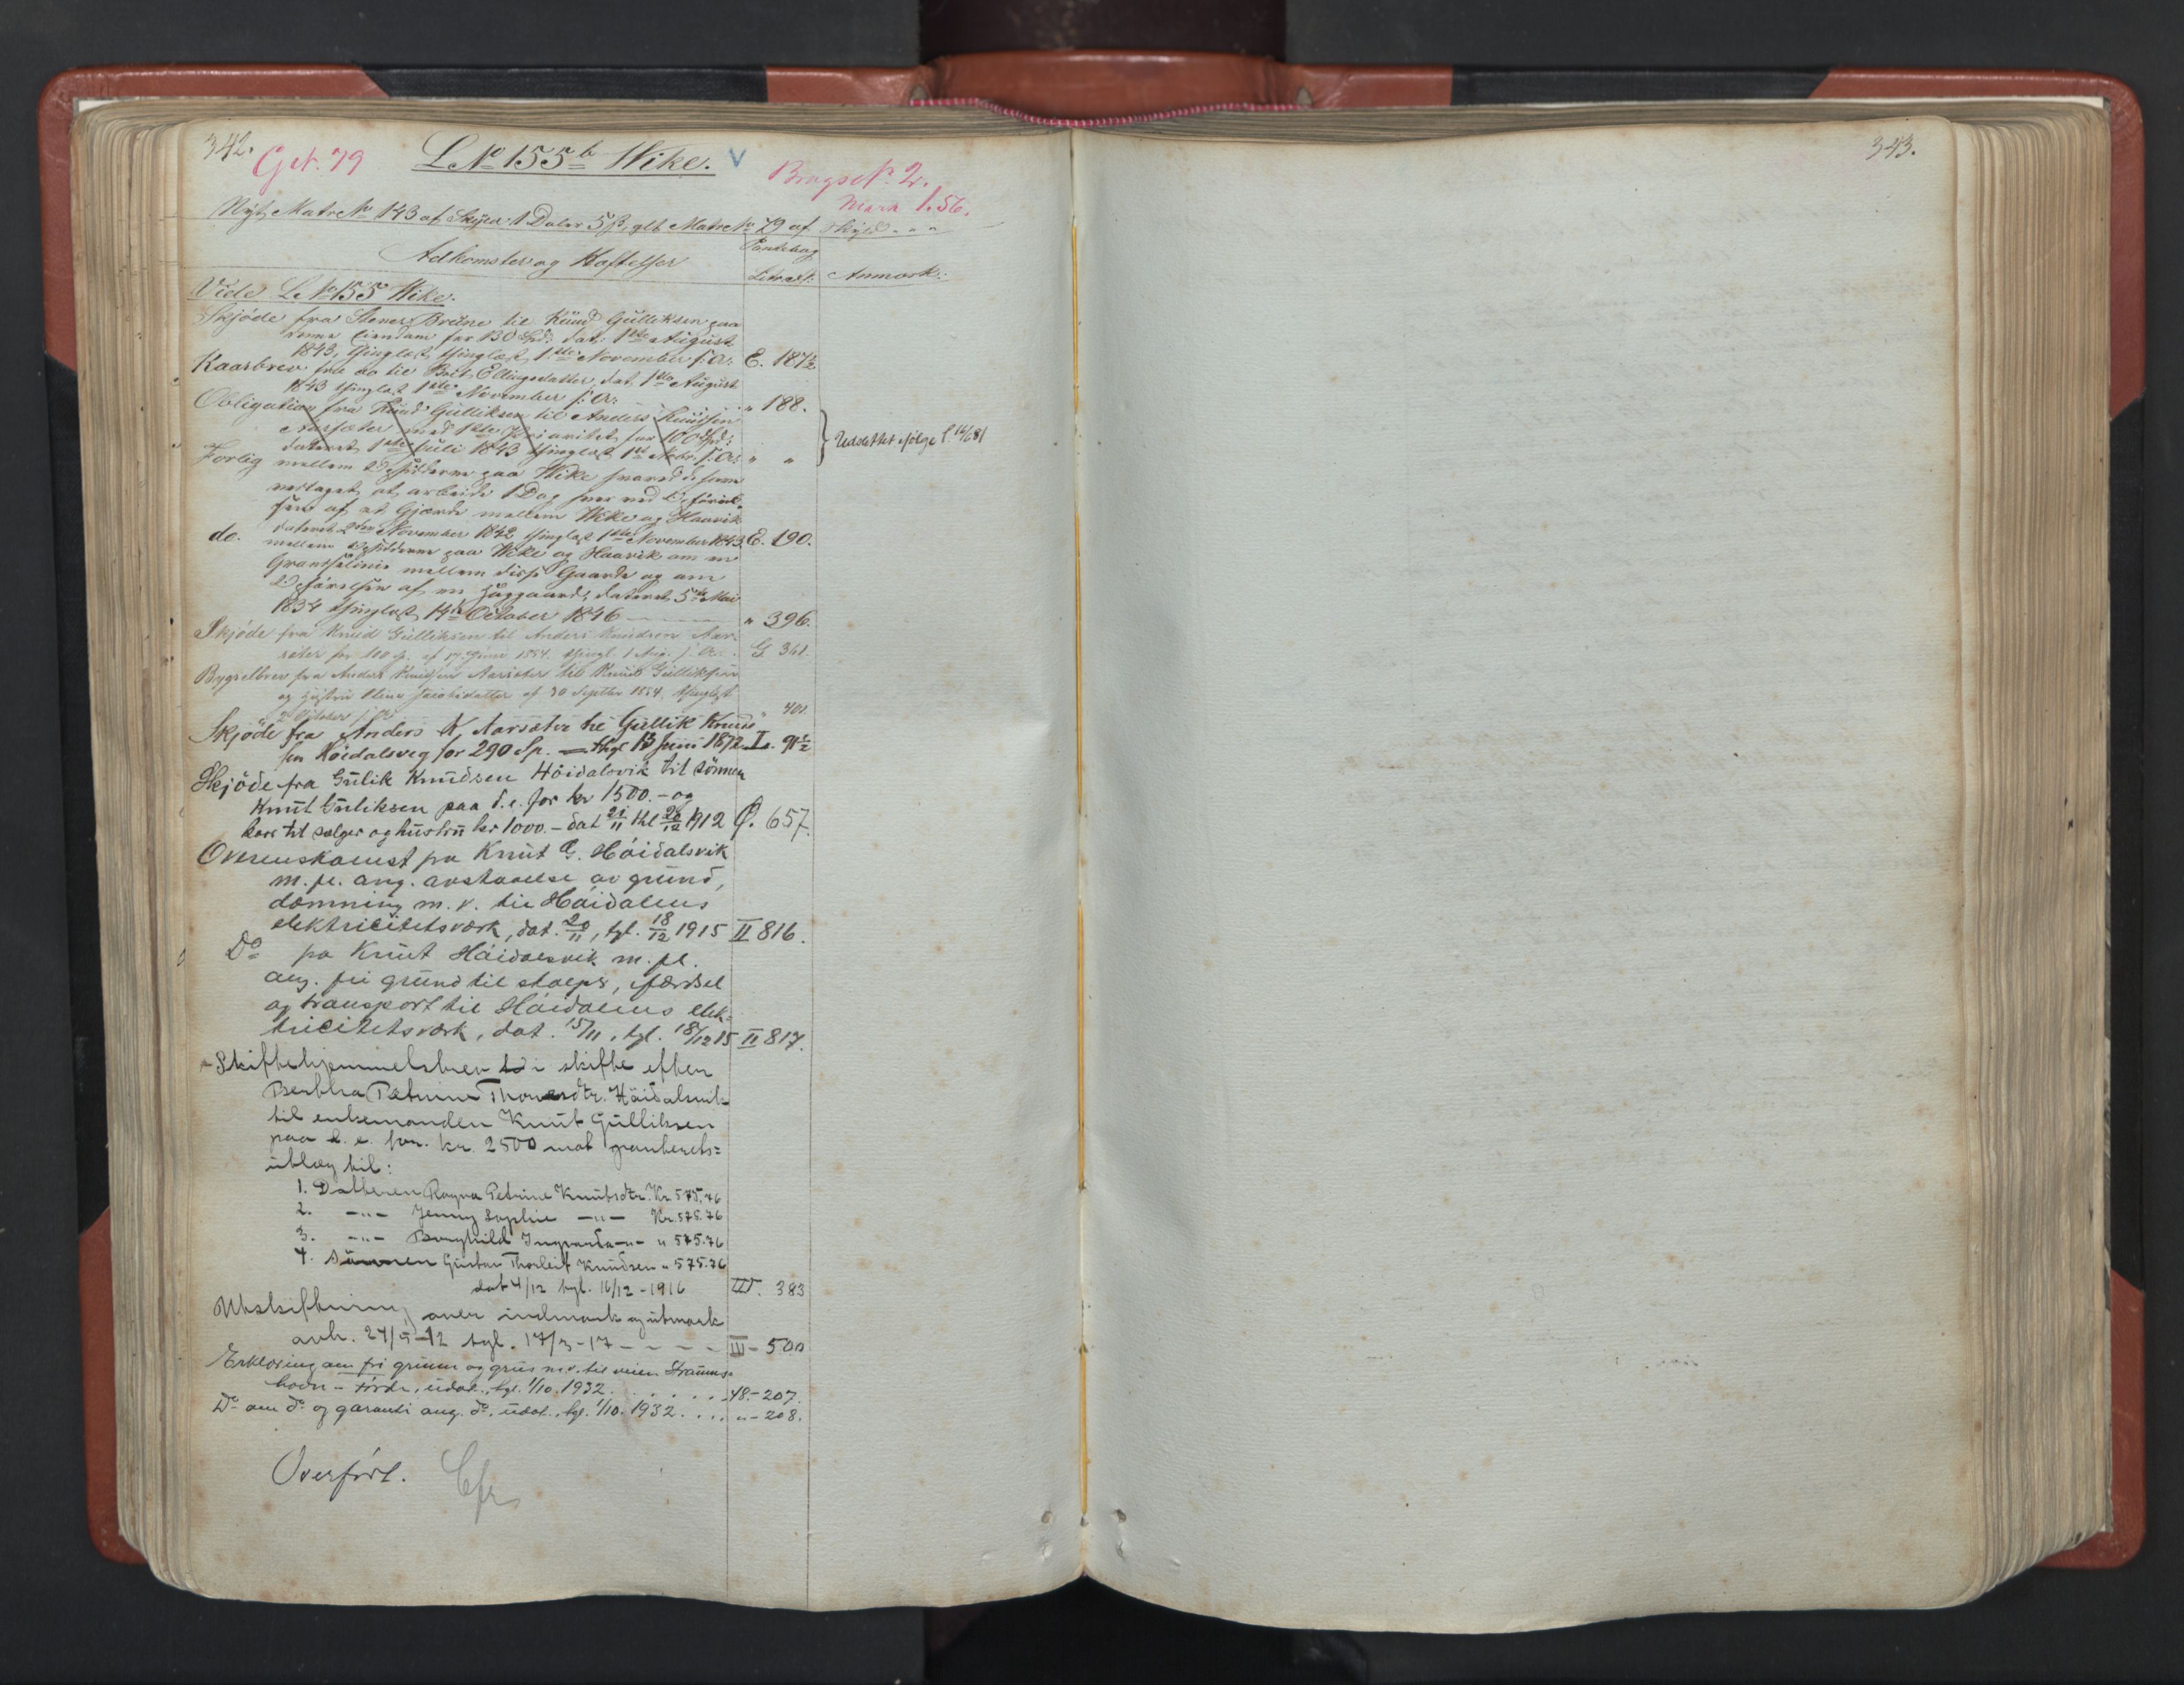 342.
Gr. 79
L. No 155 b Wike.
Brugs No 2.
Mark 1.56.
Nyt Matr No 143 af Skyld 1 Daler 5 ß, glt Matr No 79 af Skyld - - -
Adkomster og Hæftelser
Pantebog
Litra & f: Anmærk:
Vide L. No 155 Wike.
Skjöde fra Stener Bredne til Knud Gulliksen paa
denne Eiendom for 130 Spd: dat: 1ste August
1843, thinglæst 1ste November s: A: E. 187½
Kaarbrev fra do til Brit Ellingsdatter, dat. 1ste August
1843 thinglæst 1ste November s: A: " 188.
Obligation fra Knud Gulliksen til Anders Knudsen
Aarsæter med 1ste Prioritet for 100 Spd:
dateret 1ste Juli 1843 thinglæst 1ste Nobr. s: A: " "
Udslettet ifølge l. 14/6 81
Forlig mellem Opsidderne paa Wike hvorved de have
vedtaget at arbeide 1 Dag hver ved Opførel-
sen af et Gjærde mellem Wike og Haavik
dateret 2den November 1842 thinglæst 1ste November 1843. E. 190.
do. mellem Opsidderne paa Wike og Haavik om en
Grændselinie mellem disse Gaarde og om
Opførelsen af en Huggaard, dateret 5te Mai
1834 thinglæst 14de October 1846 " 396.
Skjöde fra Knud Gulliksen til Anders Knudsen Aar-
sæter for 100 Sp. af 17 Juni 1854. thingl. 1 Aug. s. A. G 361.
Bygselbrev fra Anders Knudsen Aarsæter til Knud Gulliksen
og Hustru Oline Jacobsdatter af 30 Septbr 1854, thinglæst
2 October s: A: " 401
Skjöde fra Anders K, Aarsæter til Gullik Knud-
sen Höidalsveg for 290 Sp. thgl 13 Juni 1872. I. 91½
Skjöde fra Gulik Knudsen Höidalsvik til sönnen
Knut Guliksen paa d. e. for kr 1500.- og
kaar til sælger og hustru kr 1000. - dat 21/11 thl 20/12 1912 Q. 657.
Overenskomst fra Knut G. Höidalsvik
m. fl. ang. avstaaelse av grund,
dæmning m. v. til Höidalens
elektricitetsværk, dat. 20/11, tgl. 18/12 1915 II 816.
Do fra Knut Höidalsvik m. fl.
ang. fri grund til stolper, færdsel
og transport til Höidalens elek-
tricitetsværk, dat. 15/11, tgl. 18/12 15 II 817.
Skiftehjemmelsbrev i skifte efter
Berthe Petrine Thoresdtr. Höidalsvik
til enkemanden Knut Gulliksen
paa d. e. for kr. 2500 mot panterets-
utlæg til:
1. Datteren Ragna Petrine Knutsdtr. Kr 575.76
2. -"- Jenny Sophie -"- Kr. 575.76
3. -"- Borghild Ingvarda -"- " 575.76
4. Sönnen Gustav Thorleif Knudsen " 575.76
dat 4/12 tgl. 16/12 - 1916 III. 383
Utskiftning over indmark og utmark
avh. 24/5-12 tgl. 17/3-17 - - - - III - 500
Erklæring om fri grunn og grus m. v. til veien Straums-
botn - Förde, udat., tgl. 1/10. 1932 . . . . . 48.- 207.
Do om do og garanti ang. do, udat., tgl. 1/10. 1932 . . . . " - 208.
Overfört.
343.